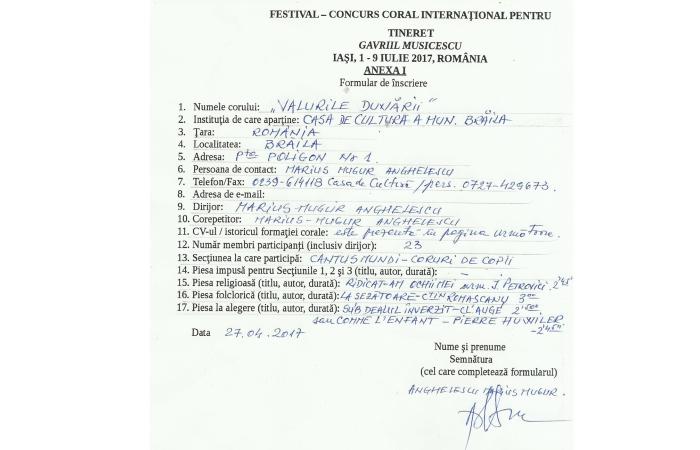 FESTIVAL – CONCURS CORAL INTERNAȚIONAL PENTRU
TINERET
GAVRIIL MUSICESCU
IAȘI, 1 - 9 IULIE 2017, ROMÂNIA
ANEXA I
Formular de înscriere
1. Numele corului: „VALURILE DUNĂRII"
2. Instituția de care aparține: CASA DE CULTURĂ A MUN. BRĂILA
3. Țara: ROMÂNIA
4. Localitatea: BRĂILA
5. Adresa: Pța POLIGON Nr 1.
6. Persoana de contact: MARIUS MUGUR ANGHELESCU
7. Telefon/Fax: 0239-614118 Casa de Cultură / pers. 0727-429673.
8. Adresa de e-mail:
9. Dirijor: MARIUS-MUGUR ANGHELESCU
10. Corepetitor: MARIUS-MUGUR ANGHELESCU
11. CV-ul / istoricul formației corale: este prezentă în pagina următoare.
12. Număr membri participanți (inclusiv dirijor): 23
13. Secțiunea la care participă: CANTUS MUNDI - CORURI DE COPII
14. Piesa impusă pentru Secțiunile 1, 2 și 3 (titlu, autor, durată): -
15. Piesa religioasă (titlu, autor, durată): RIDICAT-AM OCHII MEI J. PETROVICI 2'45"
16. Piesa folclorică (titlu, autor, durată): LA ȘEZĂTOARE - CTIN ROMAȘCANU 3'00"
17. Piesa la alegere (titlu, autor, durată): SUB DEALUL ÎNVERZIT - CL'AUGE
sau COMME L'ENFANT - PIERRE HUWILER
Data 27.04.2017
Nume și prenume
Semnătura
(cel care completează formularul)
ANGHELESCU MARIUS MUGUR.